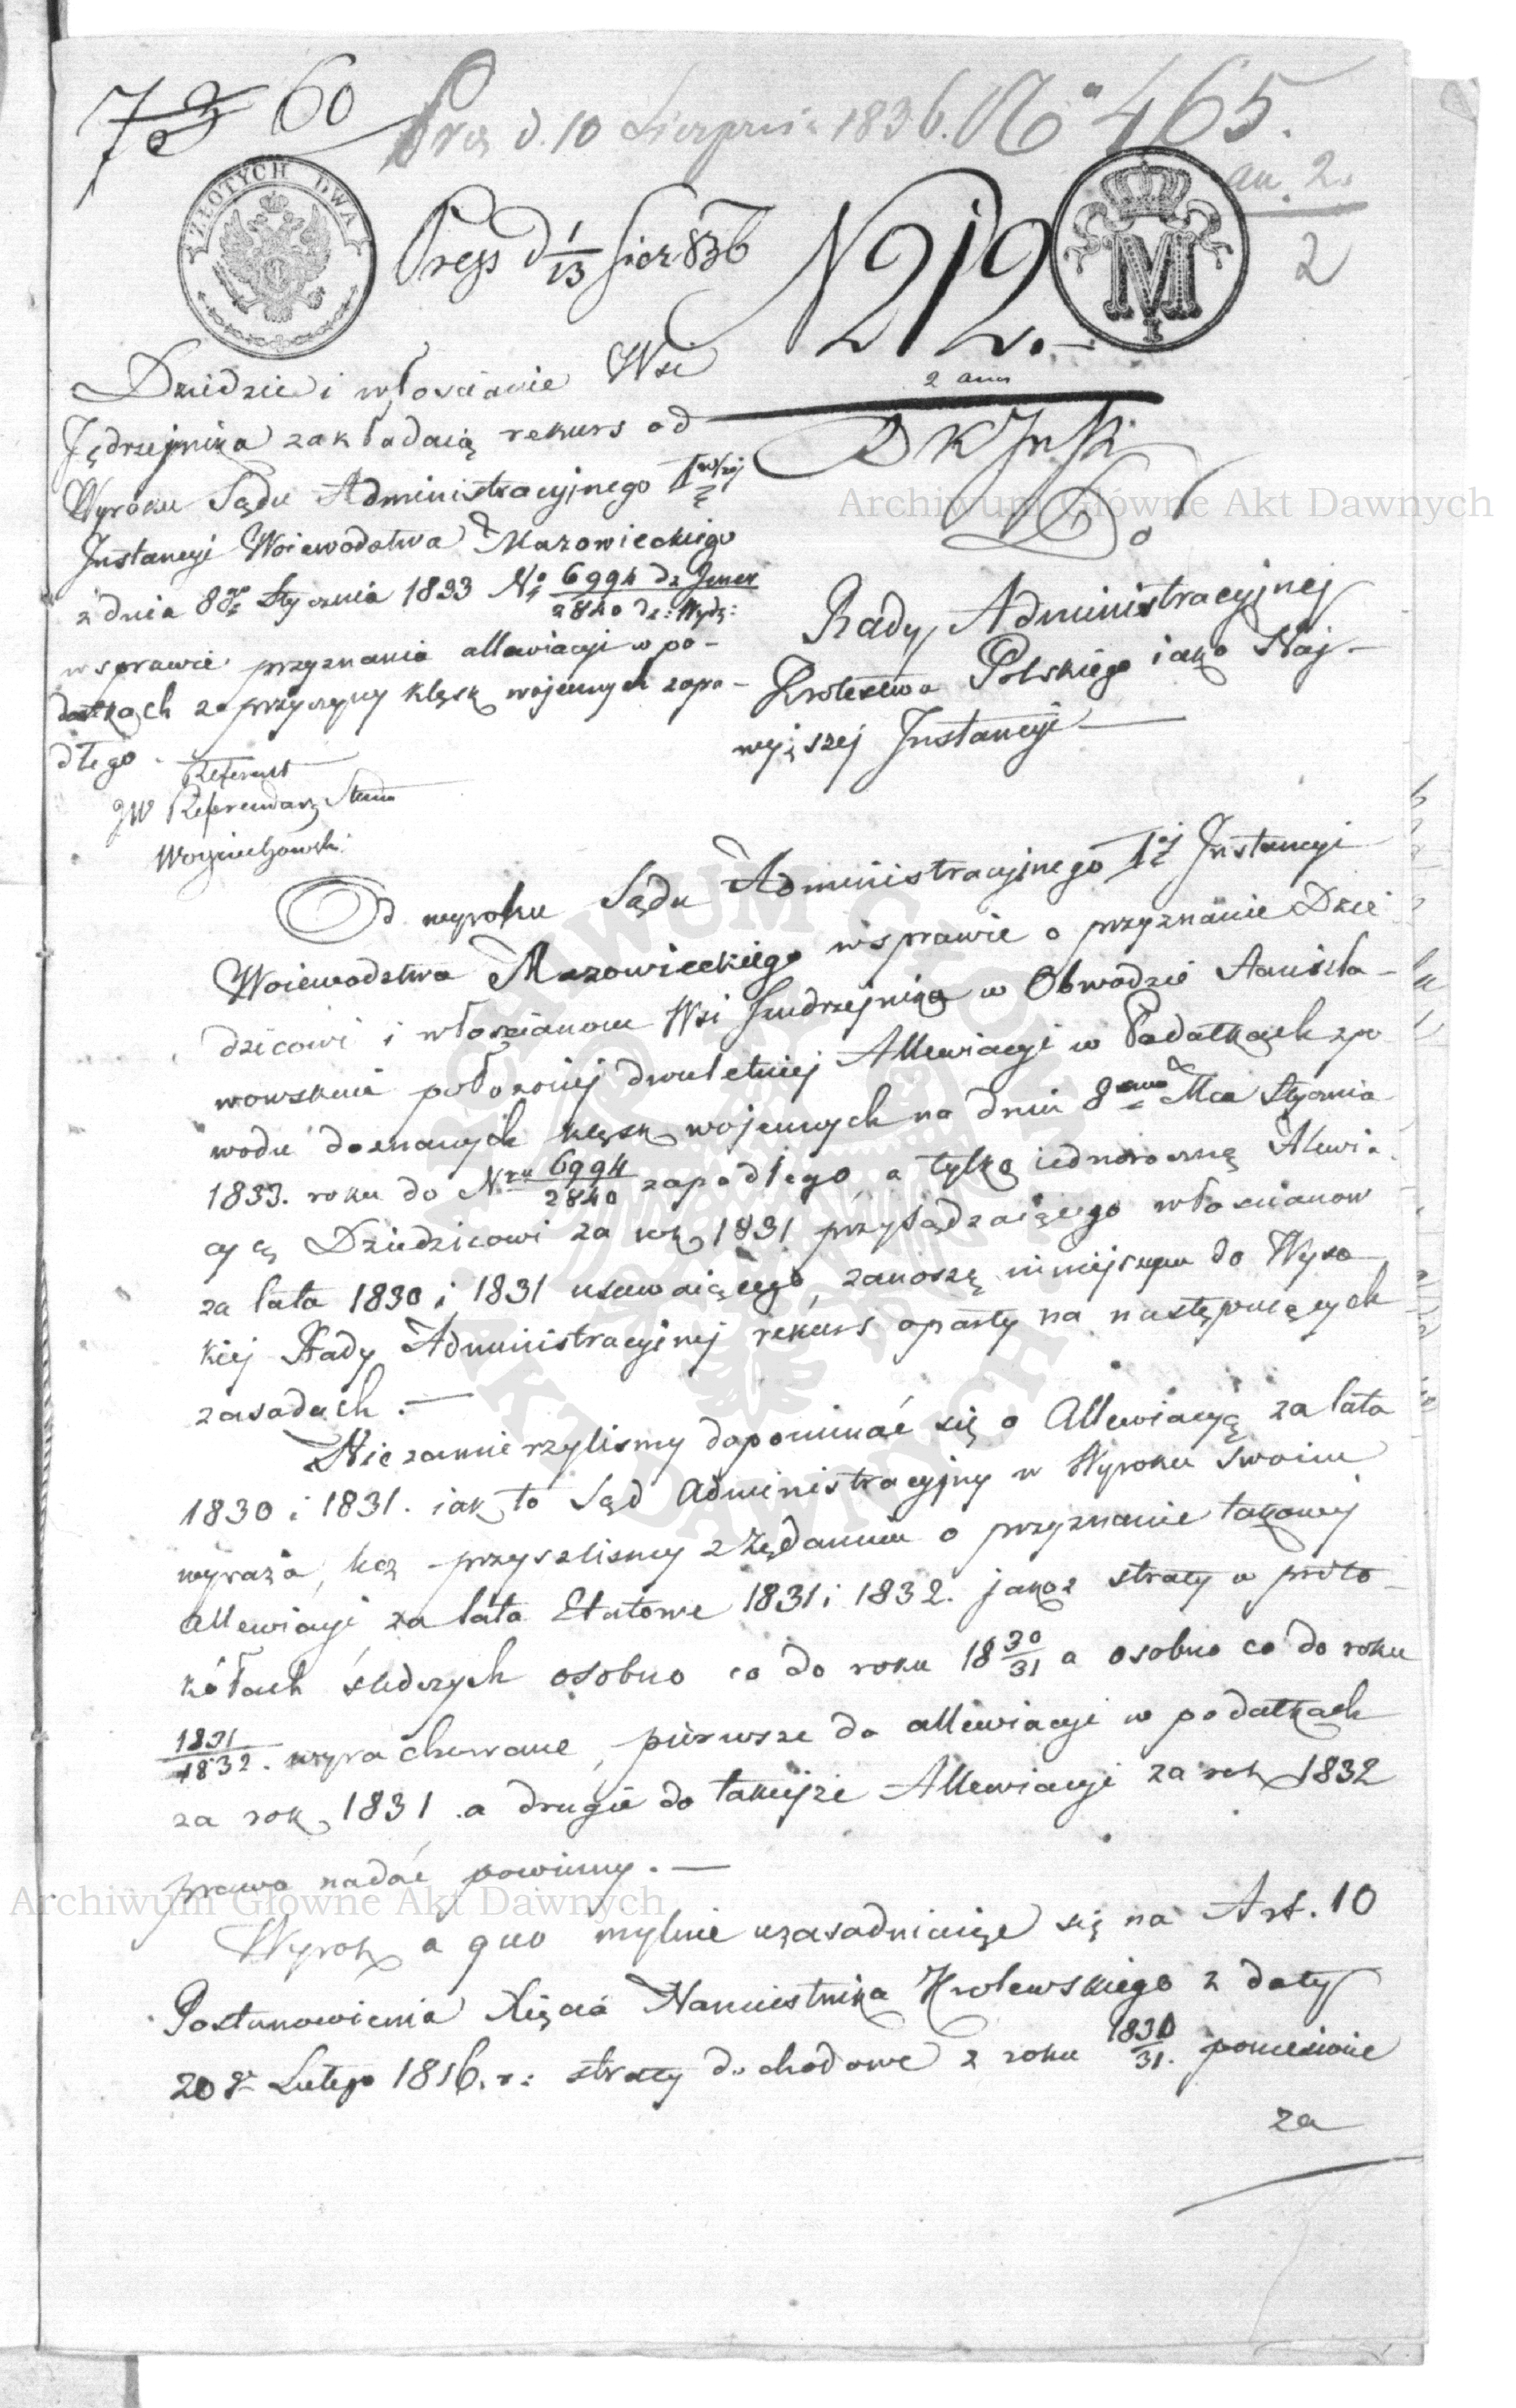 73 60
Prez d. 10 Sierpnia 1836. No 465.
an. 2.
2
ZŁOTYCH DWA
Prezs d 1/13 Sier 836 N 212.
M I
2 ann
Dziedzic i włościanie Wsi
Jędrzejnika zakładaią rekurs od
Wyroku Sądu Administracyjnego 1wszej
Instancyi Woiewodztwa Mazowieckiego
z dnia 8go Stycznia 1833 No 6994 dz Jener / 2840 dz: Wydz:
w sprawie przyznania allewiacyi w po-
datkach z przyczyny klęsk wojennych zapa-
dłego.
Referent
JW Referendarz Stanu
Woyciechowski
Do
Rady Administracyjnej
Krolestwa Polskiego iako Naj-
wyższej Instancyi
Od wyroku Sądu Administracyjnego 1ej Instancyi
Woiewodztwa Mazowieckiego w sprawie o przyznanie Dzie
dzicowi i włoscianom Wsi Jendrzejnika w Obwodzie Stanisła-
wowskim położonej dwuletniej Allewiacyi w Podatkach z po
wodu doznanych klęsk wojennych na dniu 8mo Mca Stycznia
1833. roku do Nru 6994/2840 zapadłego, a tylko iednoroczną Alewia
cyą Dziedzicowi za rok 1831 przysądzaiącego włoscianow
za lata 1830 i 1831 usuwaiącego, zanoszą niniejszym do Wyso
kiej Rady Administracyjnej rekurs oparty na następuiących
zasadach. —
Nie zamierzylismy dopominać się o Allewiacyą za lata
1830 i 1831. iak to Sąd Administracyjny w Wyroku Swoim
wyraża, lecz przyszlismy z Żądaniem o przyznanie takowej
Allewiacyi za lata Etatowe 1831 i 1832. jakoż straty w proto-
kółach śledczych osobno co do roku 1830/31 a osobno co do roku
1831/1832. wyrachowane, pierwsze do allewiacyi w podatkach
za rok 1831 a drugie do takiejże Allewiacyi za rok 1832
prawo nadać powinny. —
Wyrok a quo mylnie uzasadniaiąc się na Art. 10
Postanowienia Xięcia Namiestnika Krolewskiego z daty
20go Lutego 1816. r: straty dochodowe z roku 1830/31. poniesione
za
Archiwum Główne Akt Dawnych
Archiwum Główne Akt Dawnych
ARCHIWUM GŁÓWNE AKT DAWNYCH